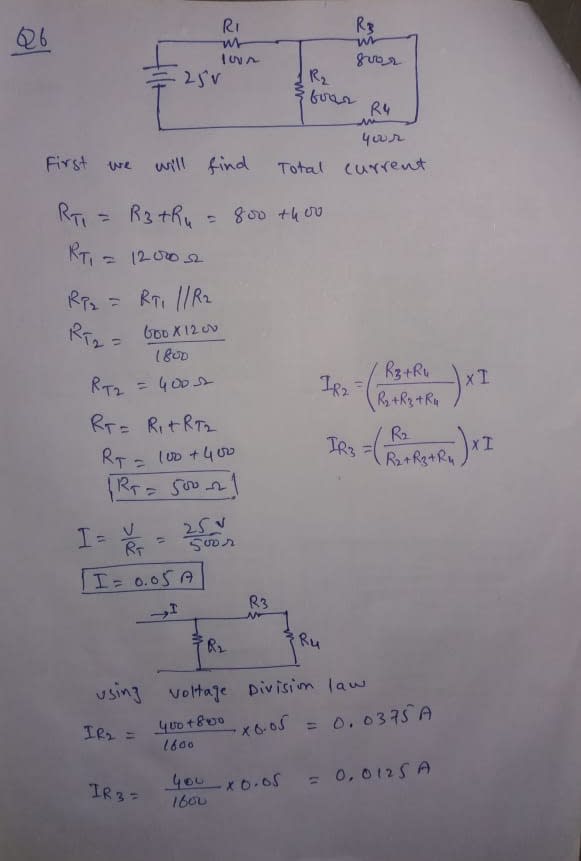 Q6
R1
100Ω
R3
800Ω
25V
R2
600Ω
R4
400Ω
First we will find Total current
RT1 = R3+R4 = 800 +400
RT1 = 1200Ω
RT2 = RT1 //R2
RT2 = 600X1200
1800
RT2 = 400Ω
RT = R1+RT2
RT = 100 +400
RT = 500Ω
IR2 = (R3+R4 / R2+R3+R4) x I
IR3 = (R2 / R2+R3+R4) x I
I = V/RT = 25V/500Ω
I = 0.05 A
→I
R3
R2
R4
using voltage Division law
IR2 = 400+800/1600 x0.05 = 0.0375 A
IR3 = 400/1600 x0.05 = 0.0125 A